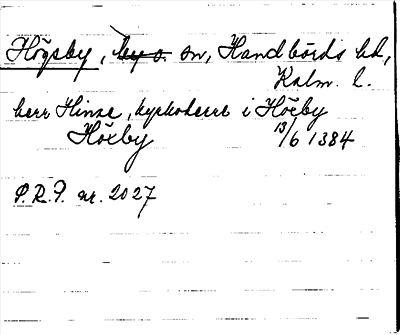 Högsby, by o. sn, Handbörds hd,
Kalm. l.
herr Hinze, kyrkoherre i Höxby
Höxby 13/6 1384
P.R.F. nr. 2027